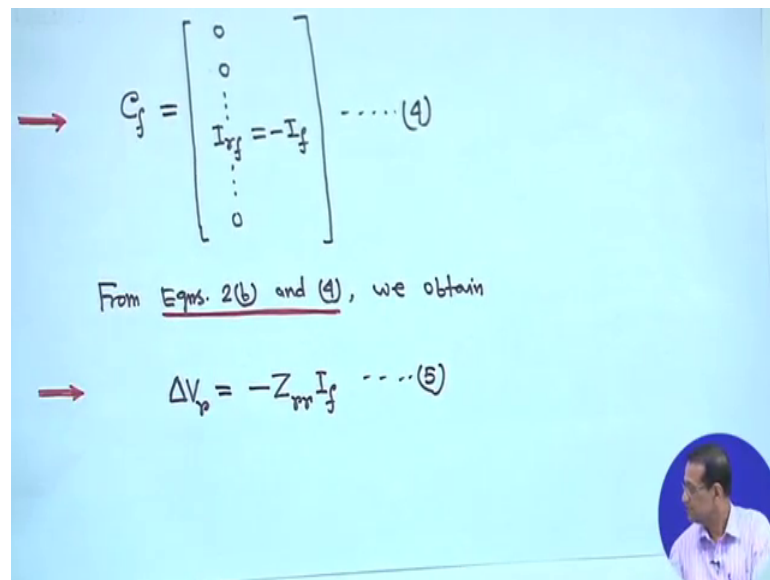 C_f = [ 0
0
⋮
I_{rf} = -I_f
⋮
0 ] ·····(4)
From Eqns. 2(b) and (4), we obtain
ΔV_r = -Z_{rr} I_f ····(5)